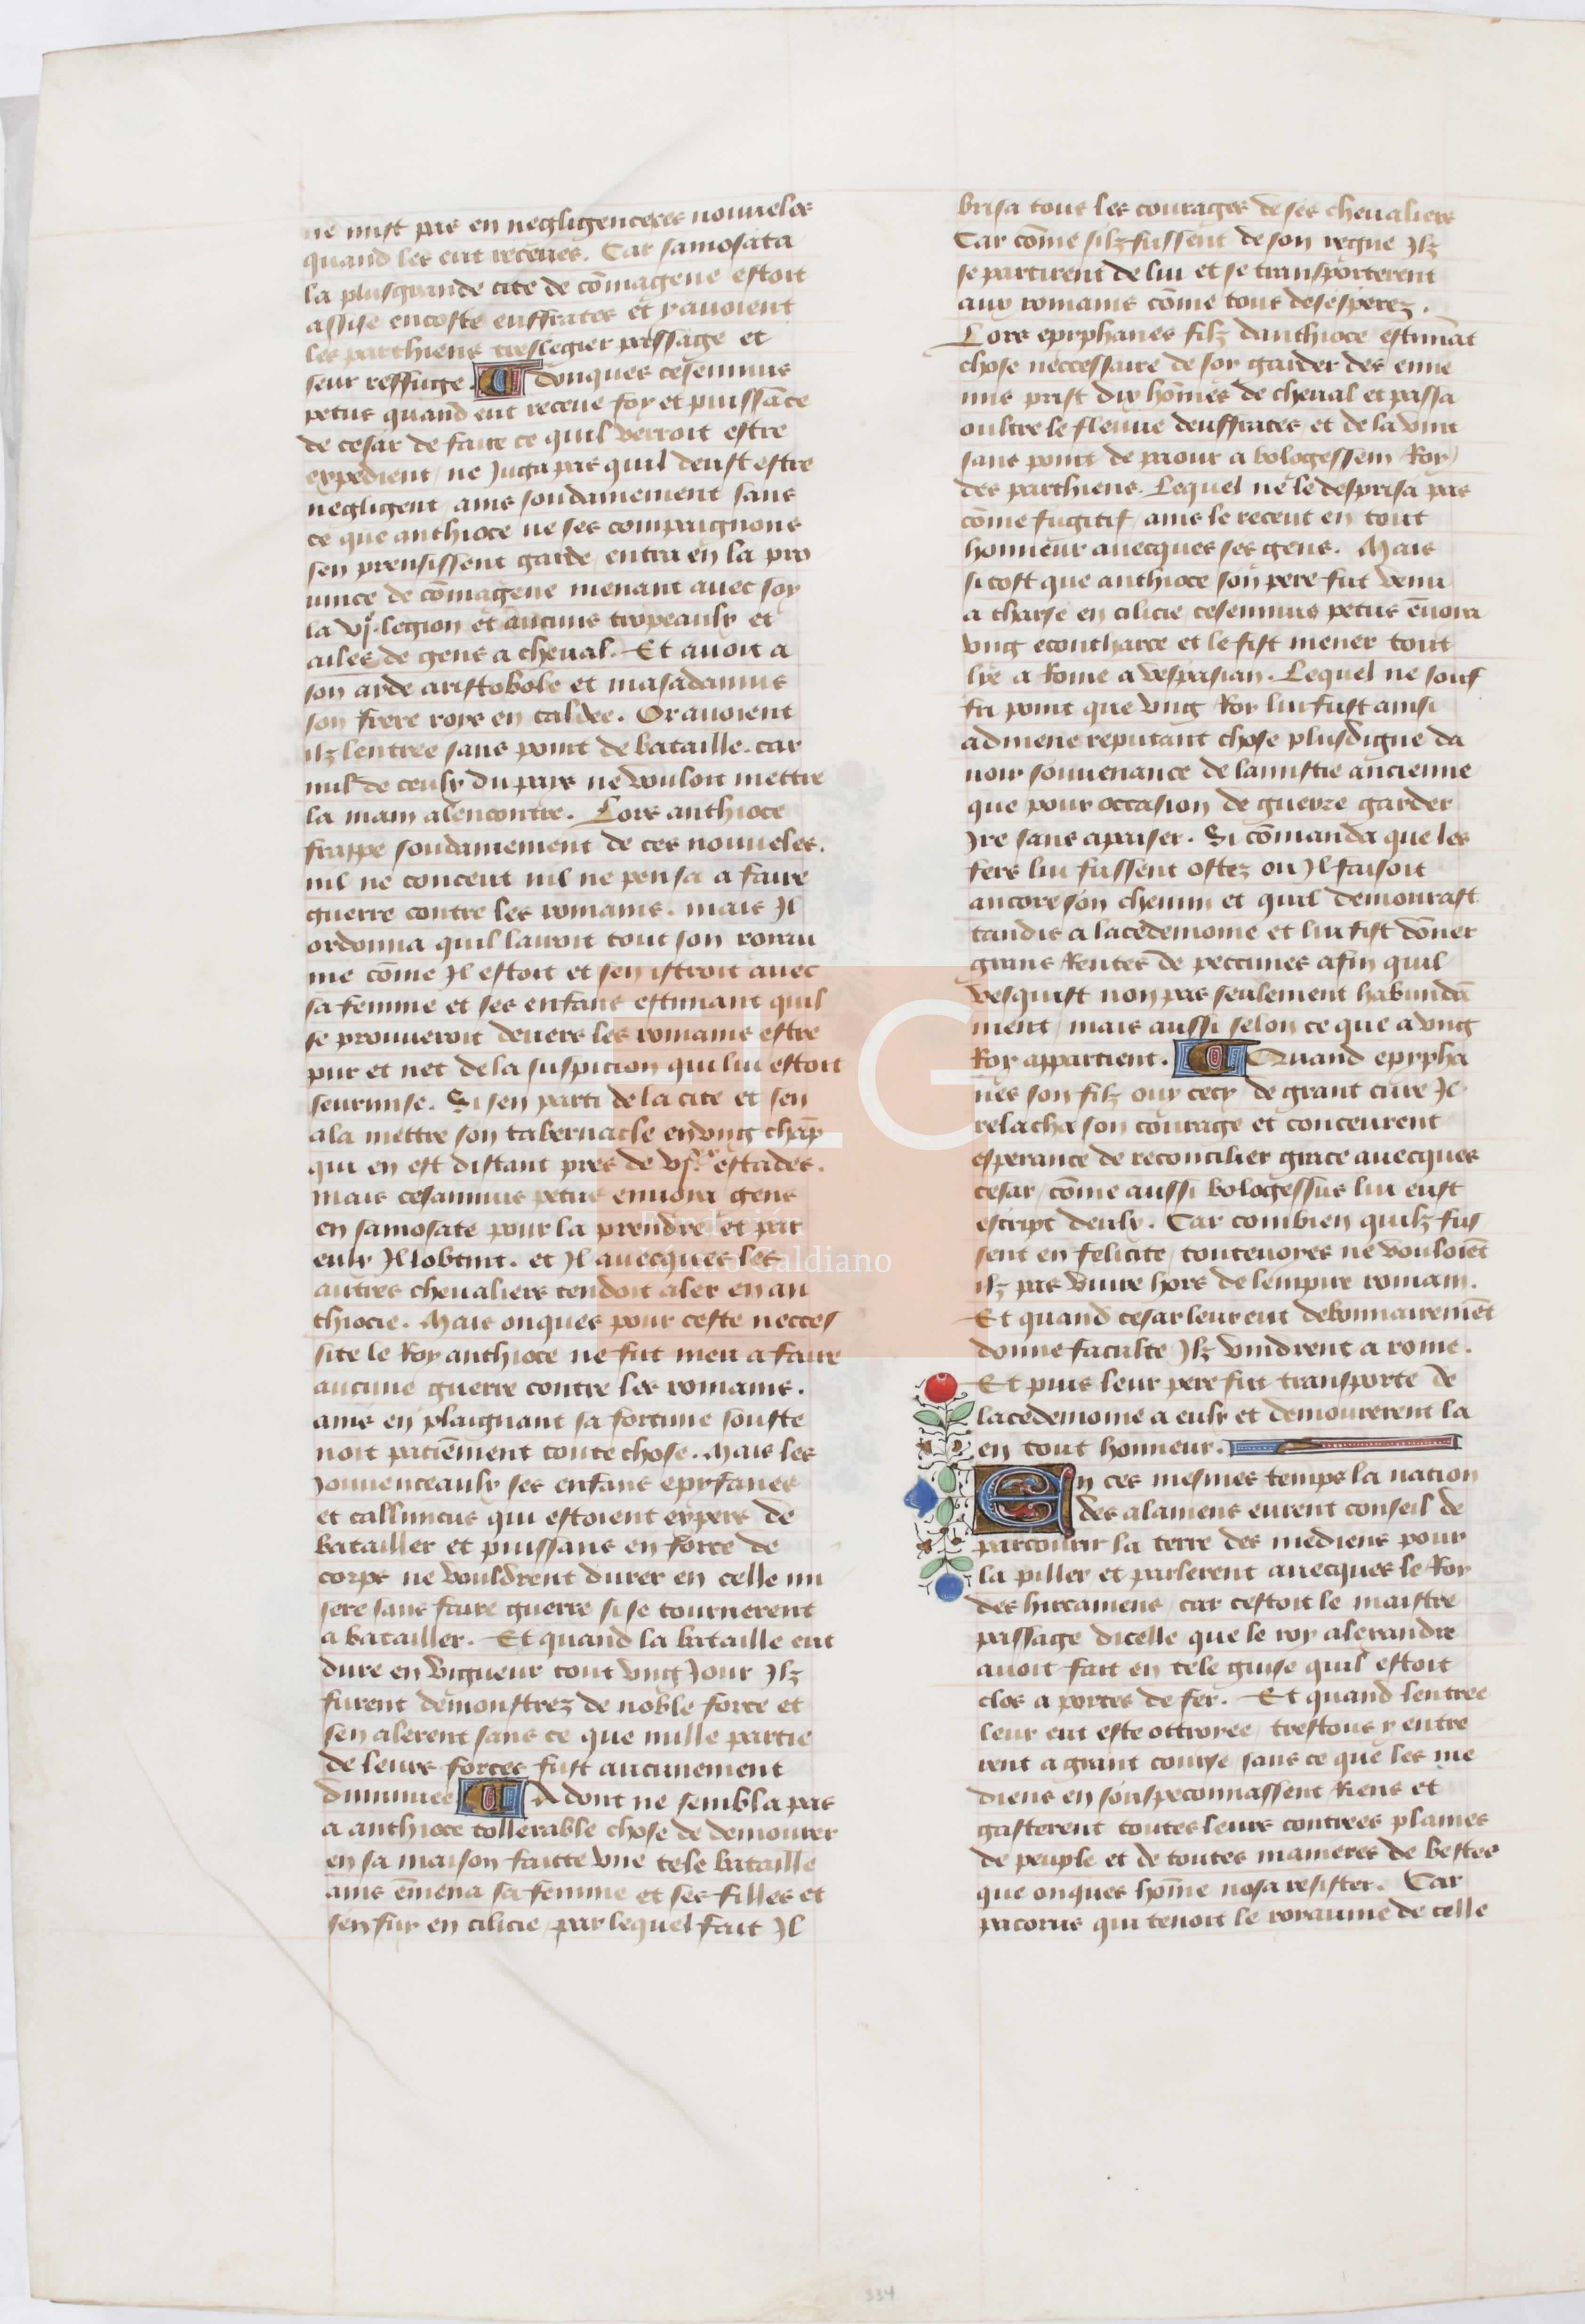 ne mist pas en negligenceces nouueles
quand les eut receues. Car samosata
la plusgrande cite de cōmagene estoit
assise encoste euffrates et y auoient
les parthiens treslegier passage et
seur reffuge. Adonques cesennius
petus quand eut receue foy et puissāce
de cesar de faire ce quil verroit estre
expedient / ne Juga pas quil deust estre
negligent / ains soudainement sans
ce que anthioce ne ses compaignons
sen prensissent garde / entra en la pro
uince de cōmagene menant auec soy
la vje legion et aucuns tropeaulx et
ailes de gens a cheual. Et auoit a
son ayde aristobole et masadamus
son frere roys en caldee. Or auoient
ilz lentree sans point de bataille. car
nul de ceulx du pays ne vouloit mettre
la main alencontre. Lors anthioce
frappe soudainement de ces nouueles.
nil ne conceut nil ne pensa a faire
guerre contre les romains. mais Jl
ordonna quil lairoit tout son royau
me cōme Jl estoit et sen istroit auec
sa femme et ses enfans estimant quil
se prouueroit deuers les romains estre
pur et net dela suspicion qui lui estoit
seurmise. Si sen parti de la cite et sen
ala mettre son tabernacle en vng chāp
qui en est distant pres de vjxx estades.
mais cesannius petus enuoia gens
en samosate pour la prendre / et par
eulx Jl lobtint. et Jl auecques les
autres cheualiers tendoit aler en an
thiocie. Mais onques pour ceste necces
site le Roy anthioce ne fut meu a faire
aucune guerre contre les romains.
ains en plaignant sa fortune souste
noit paciēment toute chose. Mais les
Jouuenceaulx ses enfans epyfanes
et callinicus qui estoient expers de
batailler et puissans en force de
corps ne vouldrent durer en celle mi
sere sans faire guerre si se tournerent
a batailler. Et quand la bataille eut
dure en vigueur tout vng Jour Jlz
furent demonstrez de noble force et
sen alerent sans ce que nulle partie
de leurs forces fust aucunement
diminuee Adont ne sembla pas
a anthioce tollerable chose de demourer
en sa maison faitte vne tele bataille
ains ēmena sa femme et ses filles et
sen fuy en cilicie / par lequel fait Jl
brisa tous les courages de ses cheualiers
Car cōme silz fussent de son regne Jlz
se partirent de lui et se transporterent
aux romains cōme tous desesperez.
Lors epyphanes filz danthioce estimāt
chose neccessaire de soy garder des enne
mis prist dix hōmes de cheual et passa
oultre le fleuue deuffrates et de la vint
sans point de paour a bologessem Roy
des parthiens. Lequel ne le desprisa pas
cōme fugitif / ains le receut en tout
honneur auecques ses gens. Mais
sitost que anthioce son pere fut venu
a tharse en cilicie cesennius petus ēuoia
vng centharce et le fist mener tout
lye a Rome a vespasian. Lequel ne souf
fri point que vng Roy lui fust ainsi
admene reputant chose plusdigne da
uoir souuenance de lamistie ancienne
que pour occasion de guerre garder
Jre sans apaiser. Si cōmanda que les
fers lui fussent ostez ou Jl faisoit
ancore son chemin et quil demourast
tandis a lacedemoine et lui fist dōner
grans Rentes de peccunes afin quil
vesquist non pas seulement habundā
ment / mais aussi selon ce que a vng
Roy appartient. Quand epypha
nes son filz ouy cecy de grant cure Jl
relacha son courage et conceurent
esperance de reconcilier grace auecques
cesar / cōme aussi bologessus lui eust
escript deulx. Car combien quilz fus
sent en felicite / toutenoyes ne vouloiēt
ilz pas viure hors de lempire romain.
Et quand cesar leur eut debonnairemēt
donne faculte Jlz vindrent a rome.
Et puis leur pere fut transporte de
lacedemoine a eulx et demourerent la
en tout honneur.
En ces mesmes temps la nation
des alamens eurent conseil de
parcourir la terre des mediens pour
la piller et parlerent auecques le Roy
des hircaniens / car cestoit le maistre
passage dicelle que le roy alexandre
auoit fait en tele guise quil estoit
clos a portes de fer. Et quand lentree
leur eut este ottroyee / trestous y entre
rent a grant course / sans ce que les me
diens en souspeconnassent Riens et
gasterent toutes leurs contrees plaines
de peuple et de toutes manieres de bestes
que onques hōme nosa resister. Car
pacorus qui tenoit le royaume de celle
FLG
Fundación
Lázaro Galdiano
334